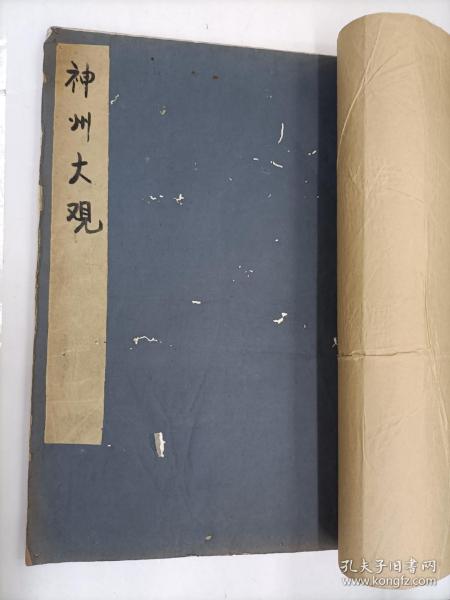 神州大观
孔夫子旧书网
www.kongfz.com